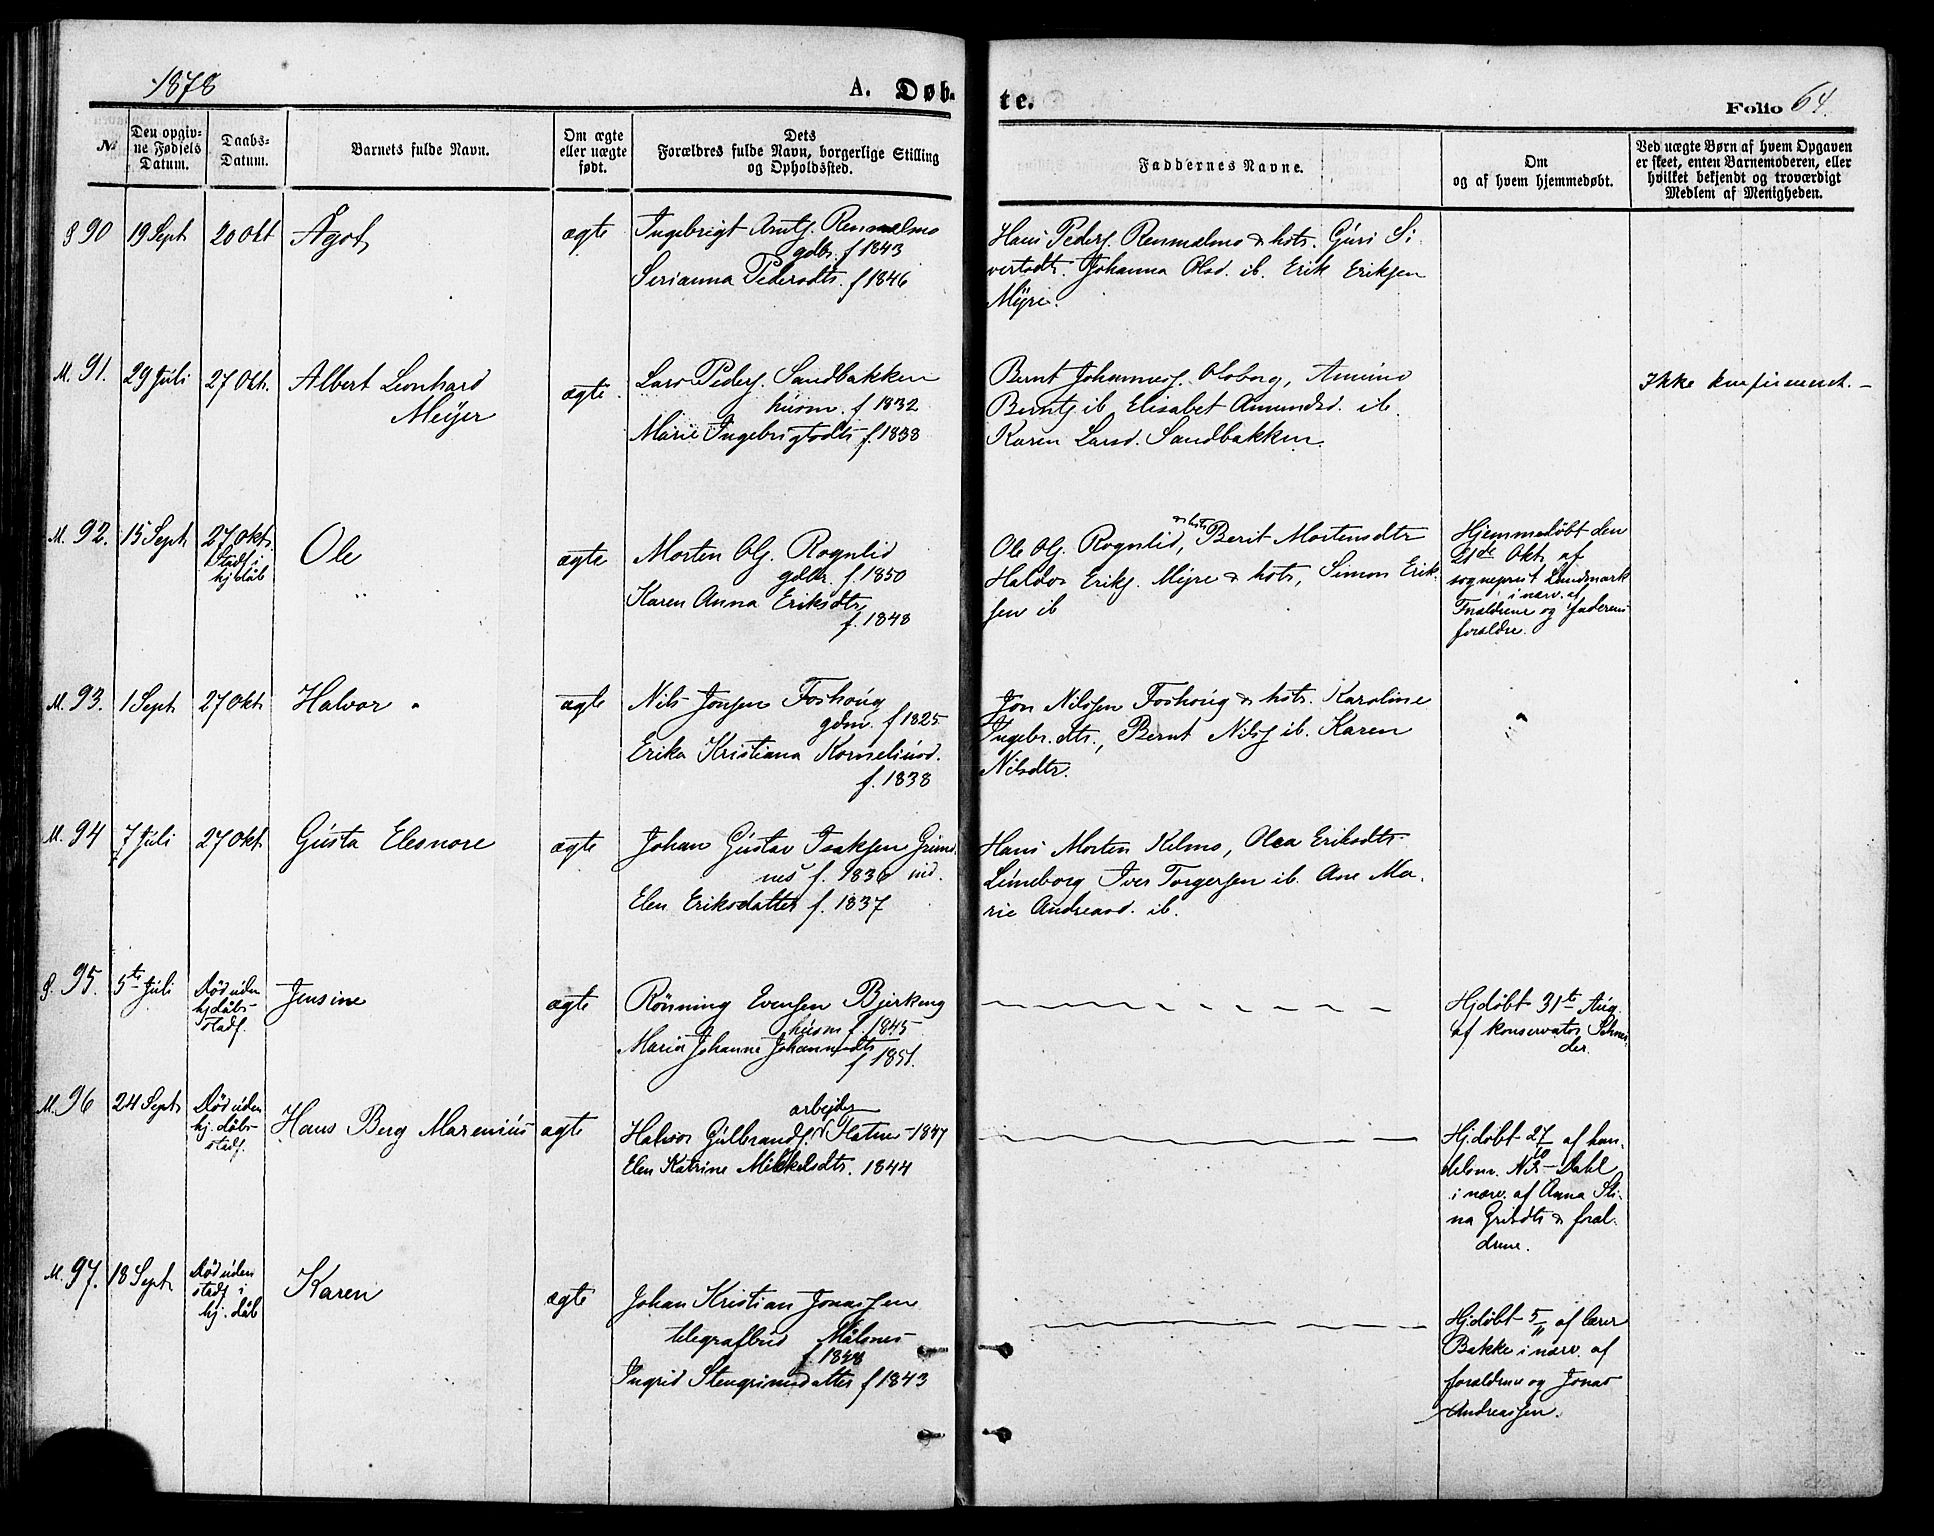 1878
A. Døb-
te.
Folio 64.
№
Den opgiv-
ne Fødsels
Datum.
Daabs-
Datum.
Barnets fulde Navn.
Om ægte
eller uægte
født.
Dets
Forældres fulde Navn, borgerlige Stilling
og Opholdssted.
Faddernes Navne.
Om
og af hvem hjemmedøbt.
Ved uægte Børn af hvem Opgaven
er skeet, enten Barnemoderen, eller
hvilket bekjendt og troværdigt
Medlem af Menigheden.
90
19 Sept
20 Okt
Agot
ægte
Ingebrigt Arnts. Rensmælmo
gdbr. f 1843
Serianna Pedersdtr. f 1846
Hans Peders. Rensmælmo & hstr. Guri Si-
vertsdtr. Johanna Olsd. ib. Erik Eriksen
Myre.
M. 91.
29 Juli
27 Okt.
Albert Leonhard
Meyer
ægte
Lars Peders. Sandbakken
husm. f 1832
Marie Ingebrigtsdtr f. 1838
Bernt Johanness. Olsborg, Amund
Bernts ib. Elisabet Amundsd. ib.
Karen Larsd. Sandbakken.
Ikke konfirmeret. -
M. 92.
15 Sept
27 Okt.
Stadf i
hj dåb
Ole
ægte
Morten Ols. Rognlid
gdbr. f. 1850
Karen Anna Eriksdtr.
f. 1848
Ole Ols. Rognlid, & hstr Berit Mortensdtr
Haldor Eriks. Myre & hstr, Simon Erik-
sen ib
Hjemmedøbt den
21de Okt. af
sogneprest Landmark
i nærv. af
Forældrene og faderens
forældre.
M. 93.
1 Sept
27 Okt
Halvor
ægte
Nils Jonsen Foshoug
gdm. f 1825
Erika Kristiana Korneliusd.
f. 1838
Jon Nilssen Foshoug & hstr. Karoline
Ingebr.dtr., Bernt Nilss ib. Karen
Nilsdtr.
M. 94
7 Juli
27 Okt
Gusta Elesnore
ægte
Johan Gustav Isaksen Grund-
nes f. 1836 ind.
Elen Eriksdatter f. 1837
Hans Morten Kelmo, Olea Eriksdtr
Luneborg Iver Torgersen ib. Ane Ma-
rie Andreasd. ib.
95.
5te Juli
Død uden
hjdåbs-
stadf.
Jensine
ægte
Rønning Evensen Bjerkeng
husm f. 1845
Maria Johanne Johannesdtr
f 1851.
Hjdøbt 31te Aug.
af konservator Schnei-
der.
M. 96
24 Sept
Død uden
hj. dåbs-
stadf.
Hans Berg Marenius
ægte
arbejder
Halvor Gulbrands. Slatnes 1847
Elen Katrine Mikkelsdtr. 1844
Hjdøbt 27/10 af han-
delsm. Nils Dahl
i nærv. af Anna Sti-
na & foræl-
drene.
M. 97.
18 Sept
Død uden
stadf i
hj. dåb
Karen
ægte
Johan Kristian Jonassen
telegrafbud Målsnes
f. 1848
Ingrid Stengrimsdatter f 1843
Hjdøbt 5/11 af lærer
Bakke i nærv. af
forældrene og Jonas
Andreassen.